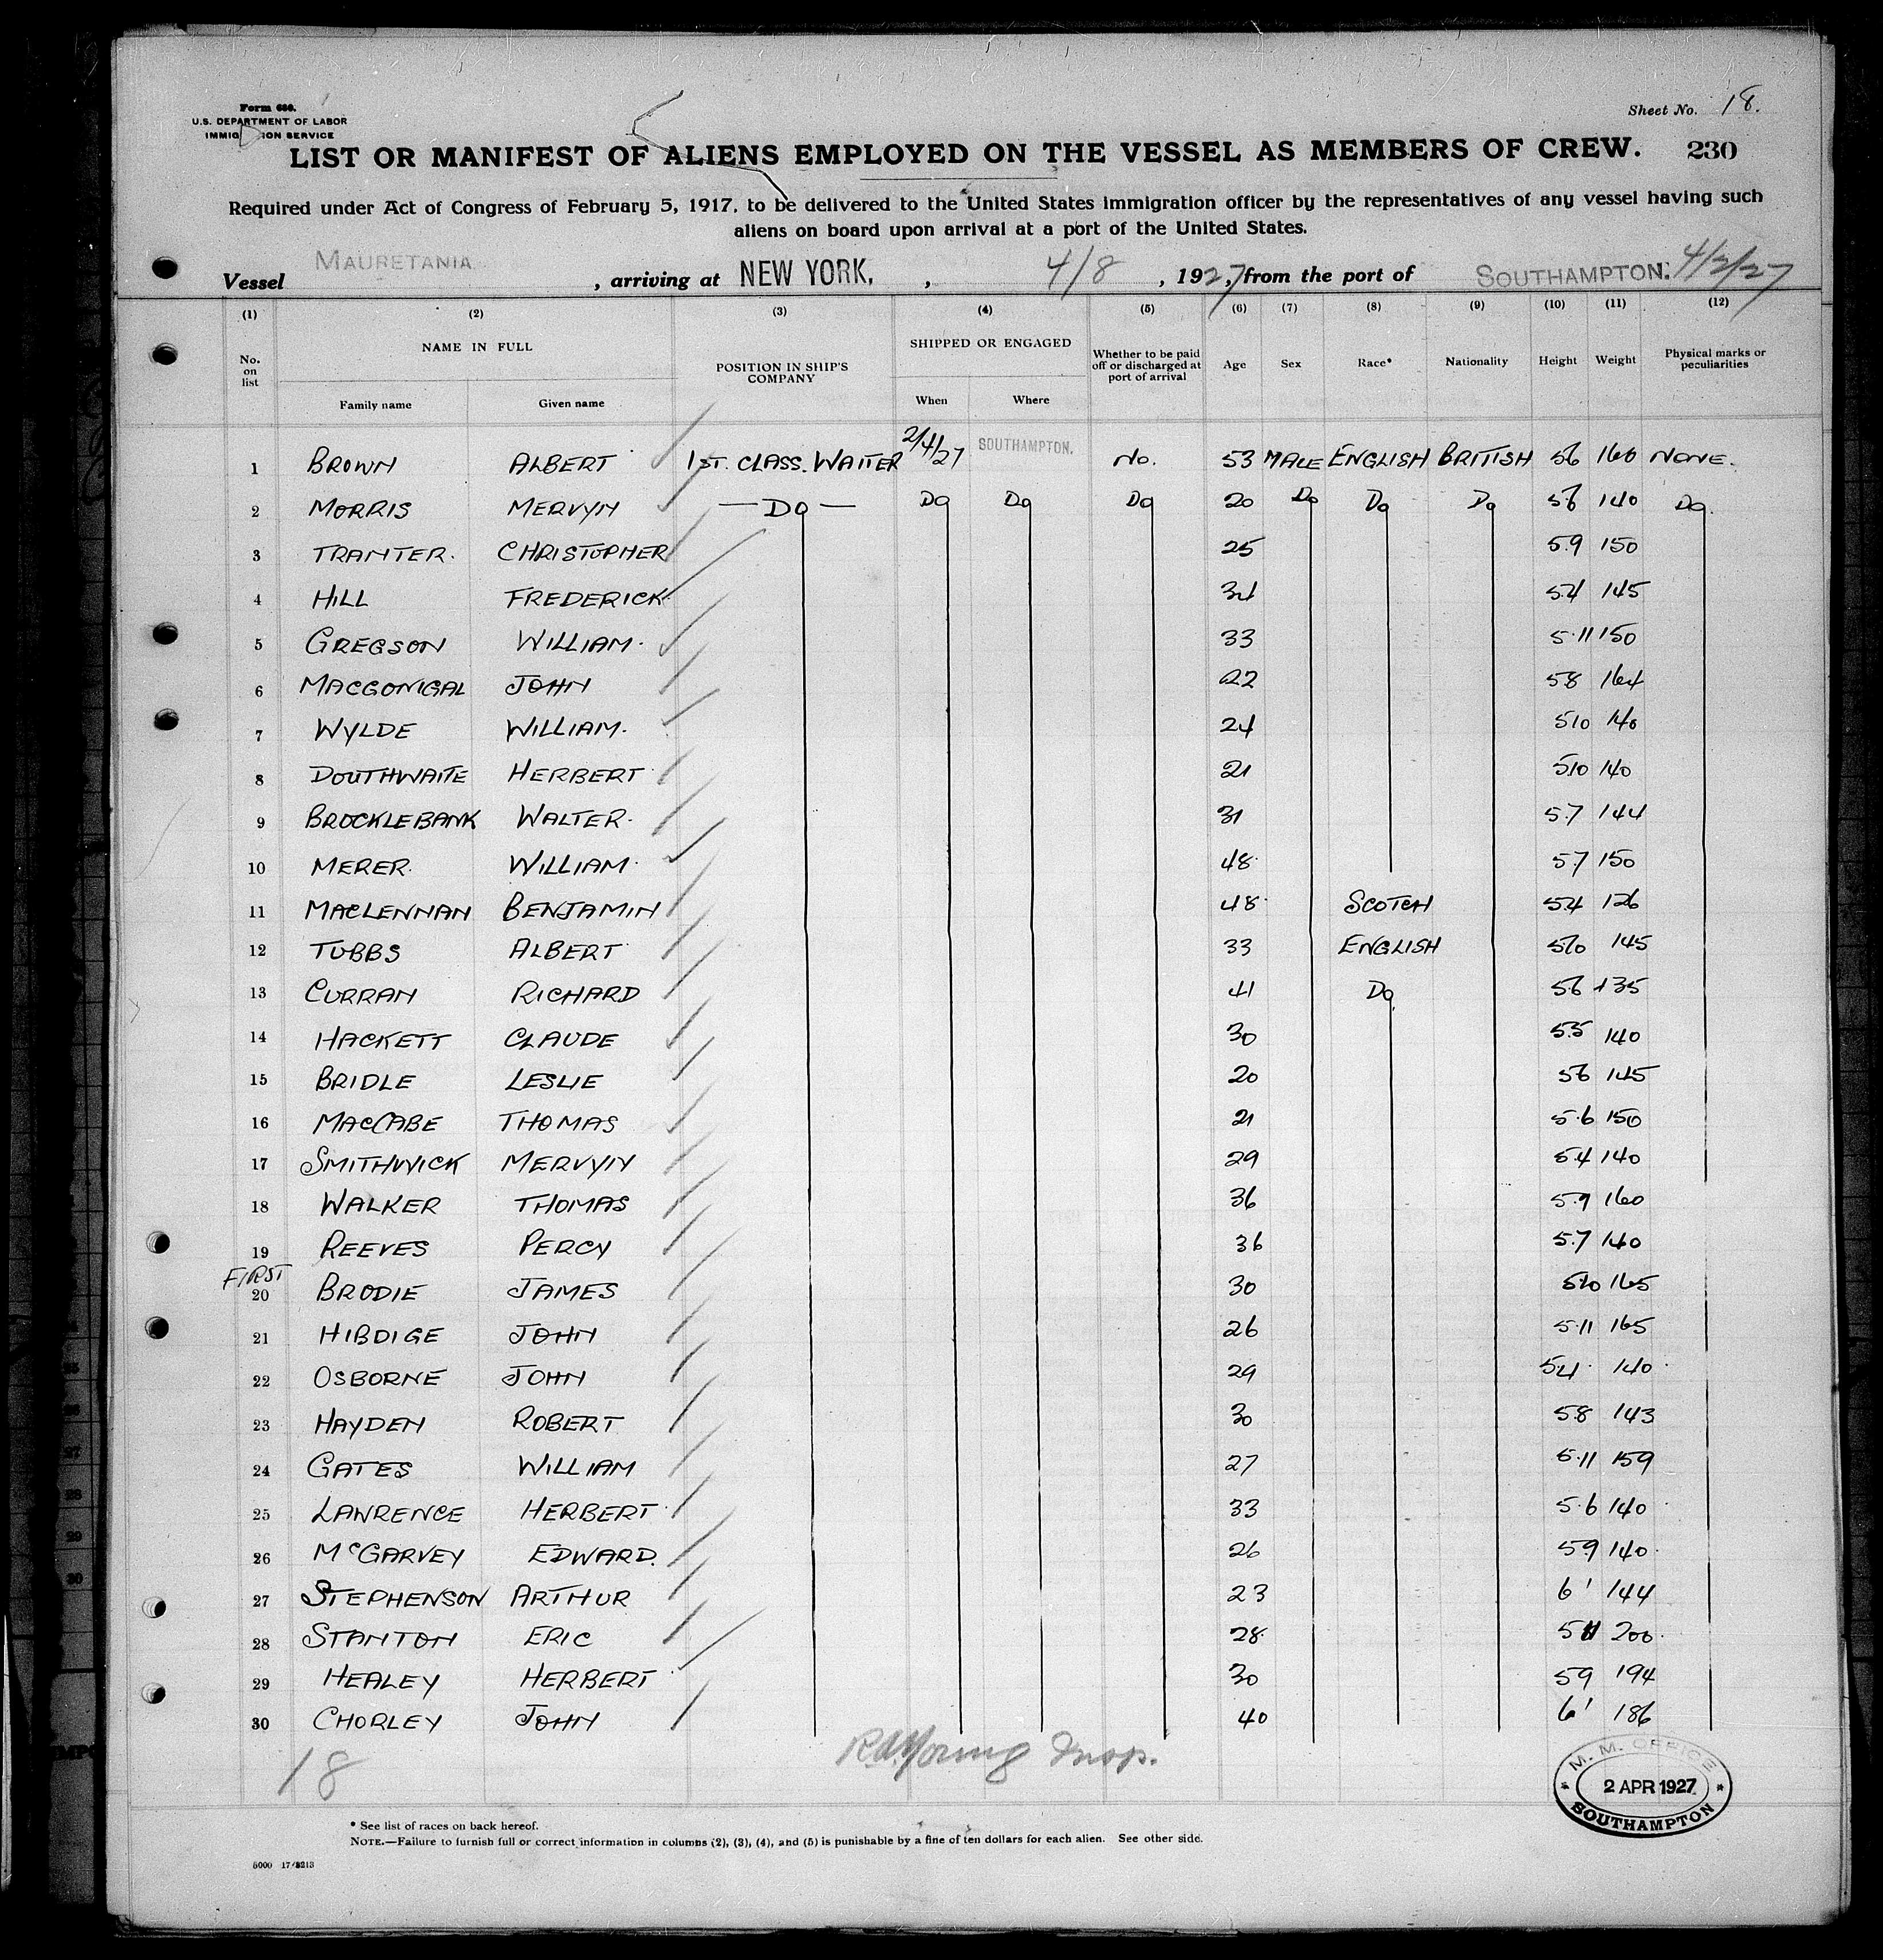 Form 680.
U.S. DEPARTMENT OF LABOR
IMMIG ION SERVICE
Sheet No. 18.
LIST OR MANIFEST OF ALIENS EMPLOYED ON THE VESSEL AS MEMBERS OF CREW. 230
Required under Act of Congress of February 5, 1917, to be delivered to the United States immigration officer by the representatives of any vessel having such
aliens on board upon arrival at a port of the United States.
Vessel MAURETANIA , arriving at NEW YORK, , 4/8 , 1927, from the port of SOUTHAMPTON. 4/2/27
(1) (2) (3) (4) (5) (6) (7) (8) (9) (10) (11) (12)
No. on list NAME IN FULL POSITION IN SHIP'S COMPANY SHIPPED OR ENGAGED Whether to be paid off or discharged at port of arrival Age Sex Race* Nationality Height Weight Physical marks or peculiarities
Family name Given name When Where
1 BROWN ALBERT 1ST. CLASS. WAITER 2/4/27 SOUTHAMPTON. No. 53 MALE ENGLISH BRITISH 56 160 NONE.
2 MORRIS MERVYN — Do — Do Do Do 20 Do Do Do 5.6 140 Do.
3 TRANTER. CHRISTOPHER 25 5.9 150
4 HILL FREDERICK 34 5.4 145
5 GREGSON WILLIAM. 33 5.11 150
6 MACGONIGAL JOHN 22 58 164
7 WYLDE WILLIAM. 24 510 140
8 DOUTHWAITE HERBERT 21 510 140
9 BROCKLEBANK WALTER. 31 5.7 144
10 MERER. WILLIAM. 48 57 150
11 MACLENNAN BENJAMIN 48 SCOTCH 54 126
12 TUBBS ALBERT 33 ENGLISH 510 145
13 CURRAN RICHARD 41 Do 56 135
14 HACKETT CLAUDE 30 5.5 140
15 BRIDLE LESLIE 20 56 145
16 MACCABE THOMAS 21 5.6 150
17 SMITHWICK MERVYN 29 5.4 140
18 WALKER THOMAS 36 5.9 160
19 REEVES PERCY 36 5.7 140
FIRST
20 BRODIE JAMES 30 510 165
21 HIBDIGE JOHN 26 5.11 165
22 OSBORNE JOHN 29 54 140
23 HAYDEN ROBERT 30 58 143
24 GATES WILLIAM 27 5.11 159
25 LAWRENCE HERBERT 33 5.6 140
26 McGARVEY EDWARD. 26 59 140
27 STEPHENSON ARTHUR 23 6' 144
28 STANTON ERIC 28 511 200
29 HEALEY HERBERT 30 59 194
30 CHORLEY JOHN 40 6' 186
18 Young Insp.
M. M. OFFICE
2 APR 1927
SOUTHAMPTON
* See list of races on back hereof.
NOTE.—Failure to furnish full or correct information in columns (2), (3), (4), and (5) is punishable by a fine of ten dollars for each alien. See other side.